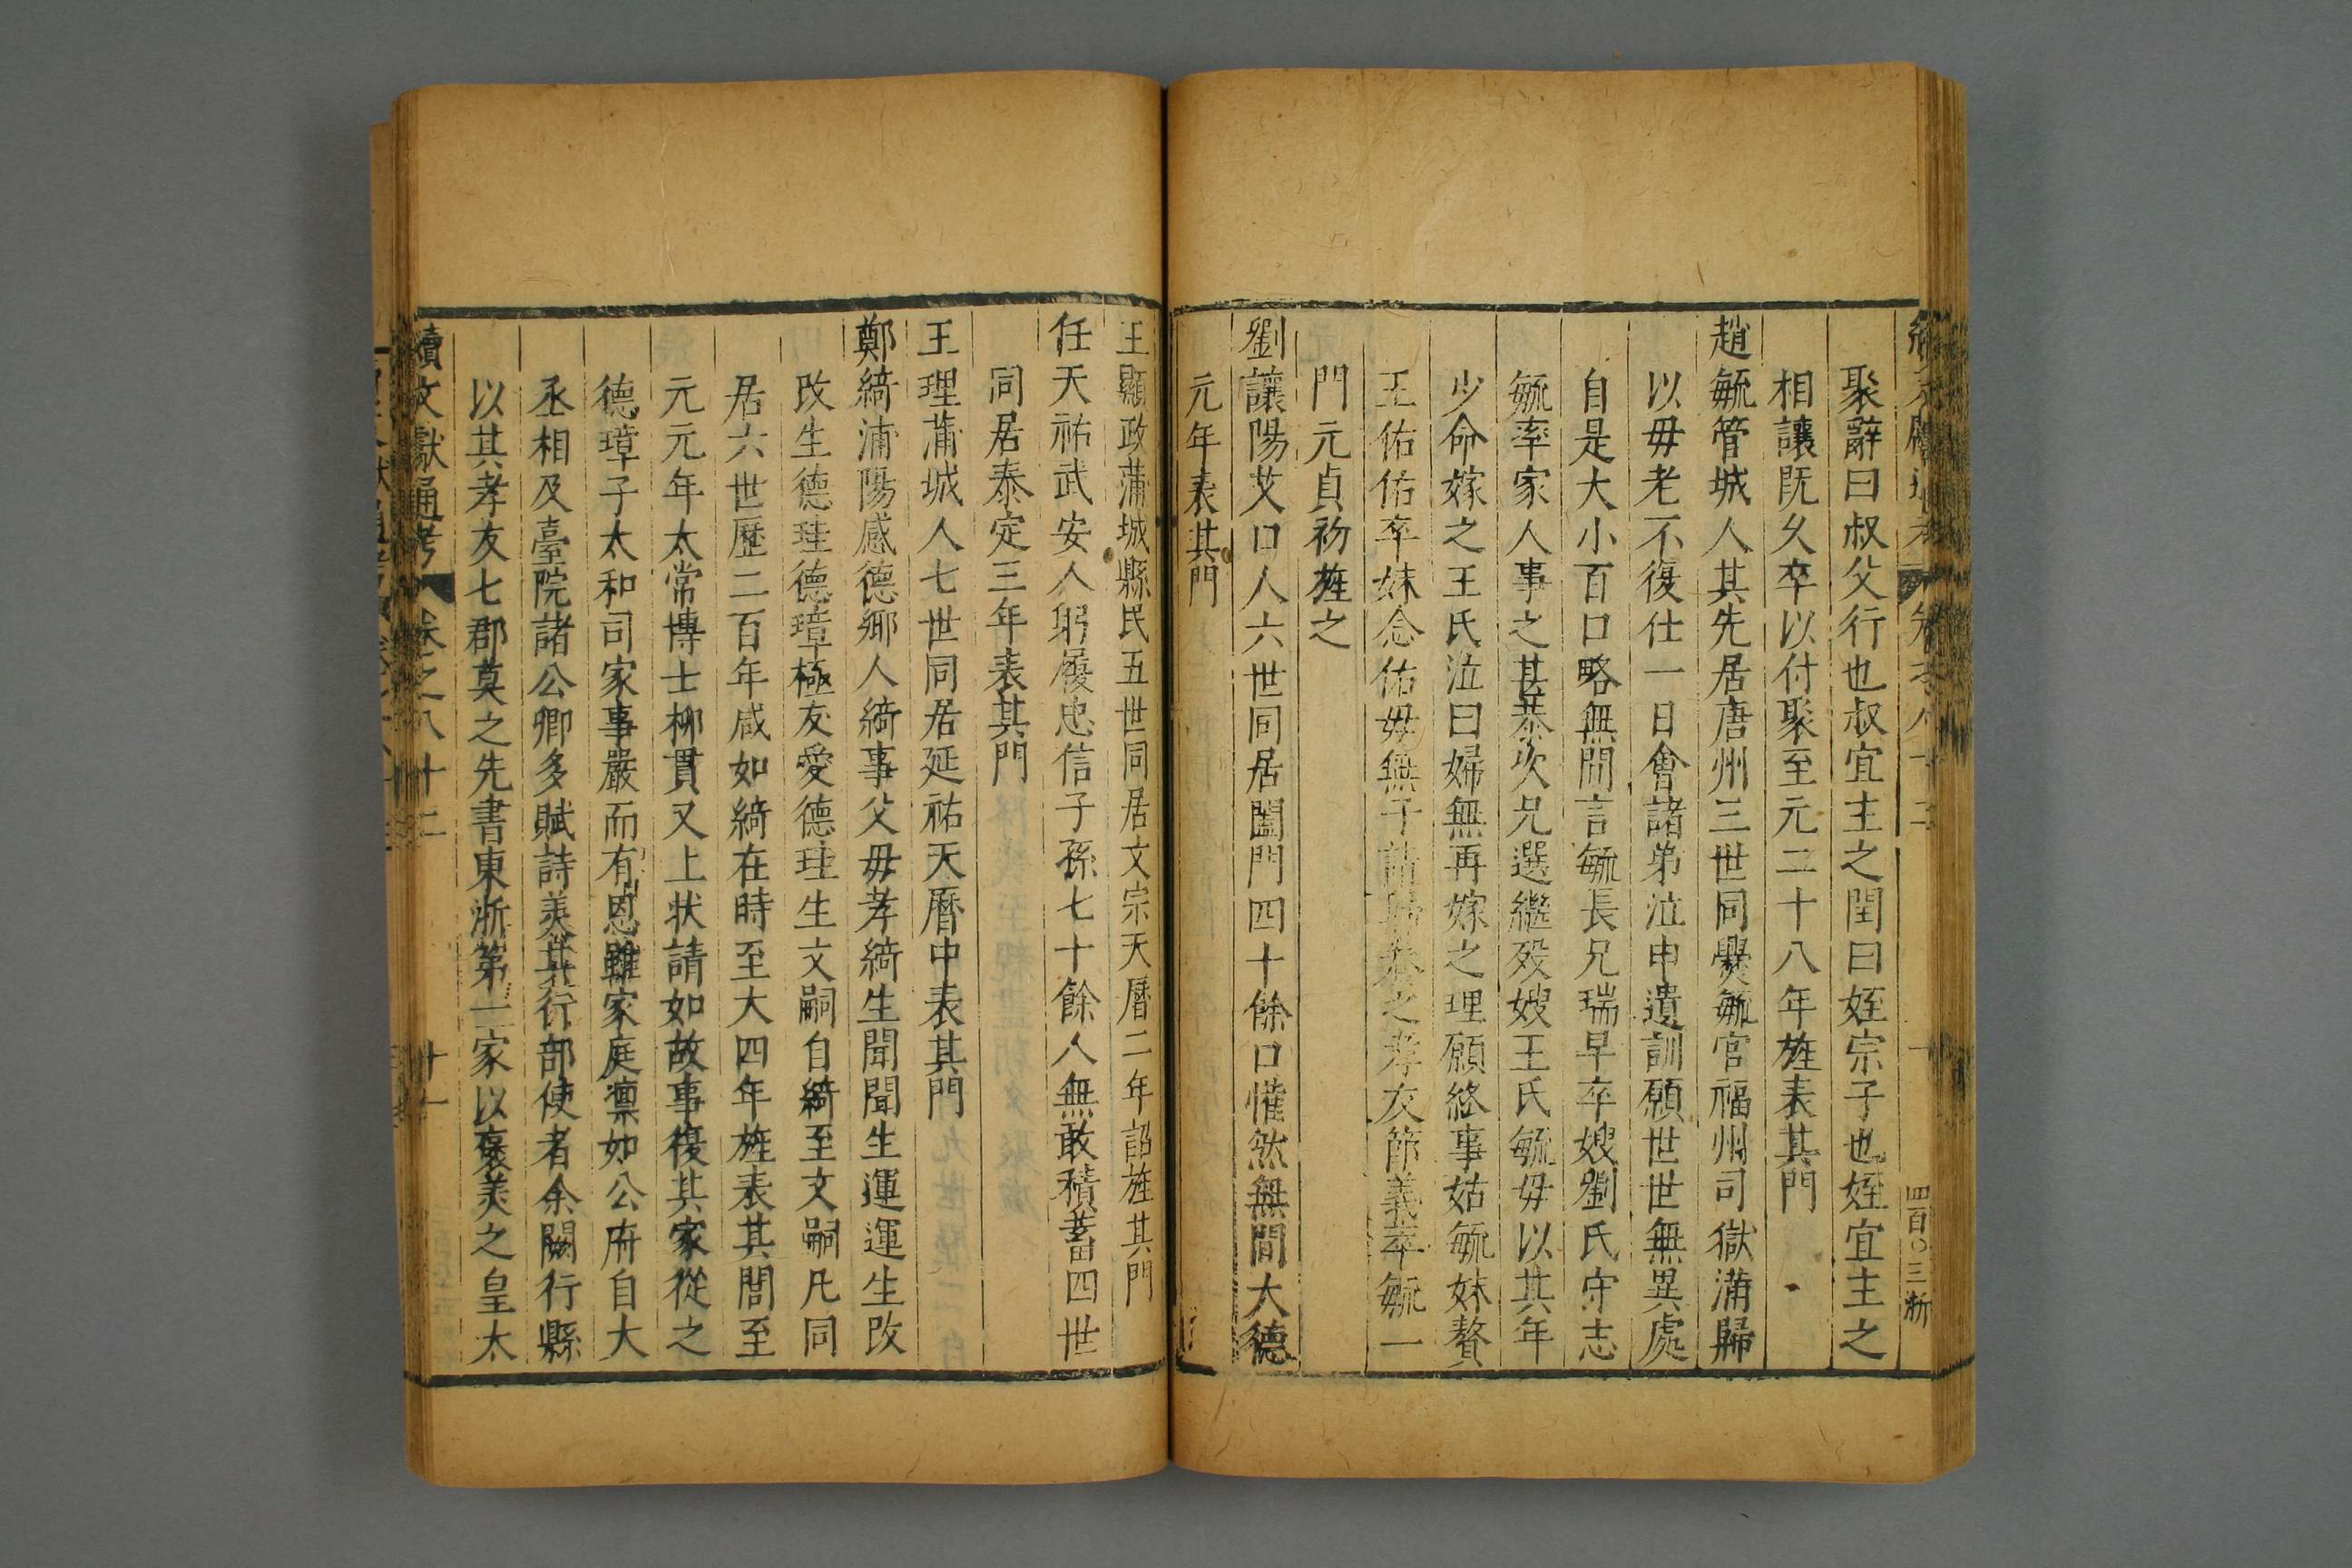 聚辭曰叔父行也叔宜主之閏曰姪宗子也姪宜主之
相讓旣久卒以付聚至元二十八年旌表其門
趙毓管城人其先居唐州三世同爨毓官福州司獄滿歸
以毋老不復仕一日會諸弟泣申遺訓願世世無異處
自是大小百口略無間言毓長兄瑞早卒嫂劉氏守志
毓率家人事之甚恭次兄選繼歿嫂王氏毓毋以其年
少命嫁之王氏泣曰婦無再嫁之理願終事姑毓妹贅
王佑佑卒妹念佑毋無子請歸養之孝友節義萃毓一
門元貞初旌之
劉讓陽艾口人六世同居闔門四十餘口懽然無間大德
元年表其門
王顯政蒲城縣民五世同居文宗天曆二年詔旌其門
任天祐武安人躬履忠信子孫七十餘人無敢積蓄四世
同居泰定三年表其門
王理蒲城人七世同居延祐天曆中表其門
鄭綺浦陽感德鄉人綺事父毋孝綺生聞聞生運運生政
政生德珪德璋極友愛德珪生文嗣自綺至文嗣凡同
居六世歷二百年咸如綺在時至大四年旌表其閭至
元元年太常博士柳貫又上狀請如故事復其家從之
德璋子太和司家事嚴而有恩雖家庭凛如公府自大
丞相及臺院諸公卿多賦詩美其行部使者余闕行縣
以其孝友七郡莫之先書東浙第一家以褒美之皇太
續文獻通考 卷之八十二 十一
四百〇三 浙